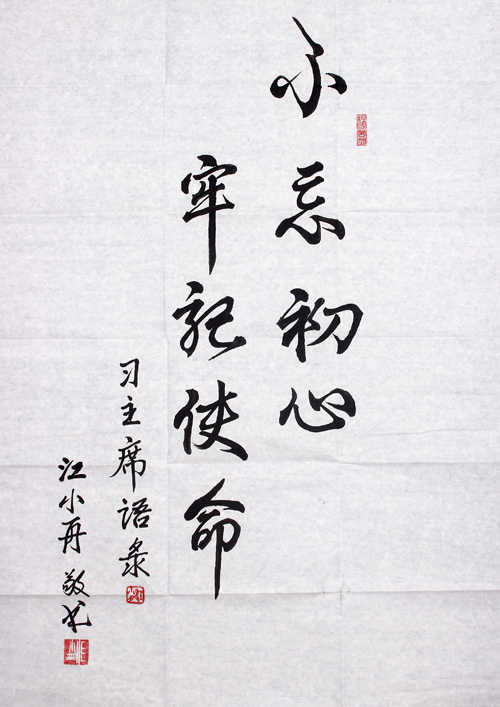 不忘初心
牢记使命
习主席语录
江小舟敬书